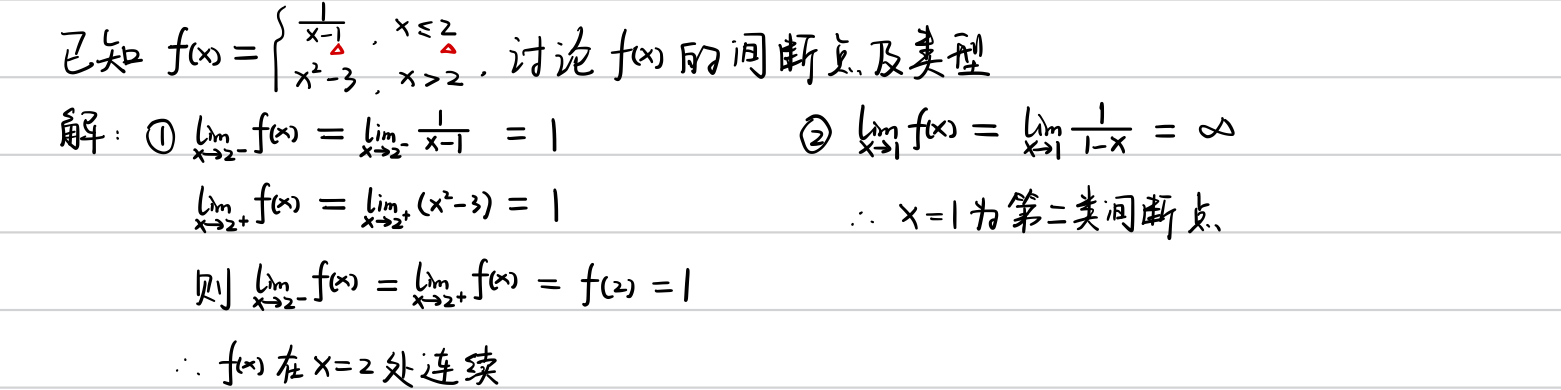 已知 f(x) = { 1/(x-1) , x ≤ 2
x²-3 , x > 2 , 讨论 f(x) 的间断点及类型
解: ① lim_{x→2⁻} f(x) = lim_{x→2⁻} 1/(x-1) = 1
lim_{x→2⁺} f(x) = lim_{x→2⁺} (x²-3) = 1
则 lim_{x→2⁻} f(x) = lim_{x→2⁺} f(x) = f(2) = 1
∴ f(x) 在 x=2 处连续
② lim_{x→1} f(x) = lim_{x→1} 1/(1-x) = ∞
∴ x=1 为第二类间断点